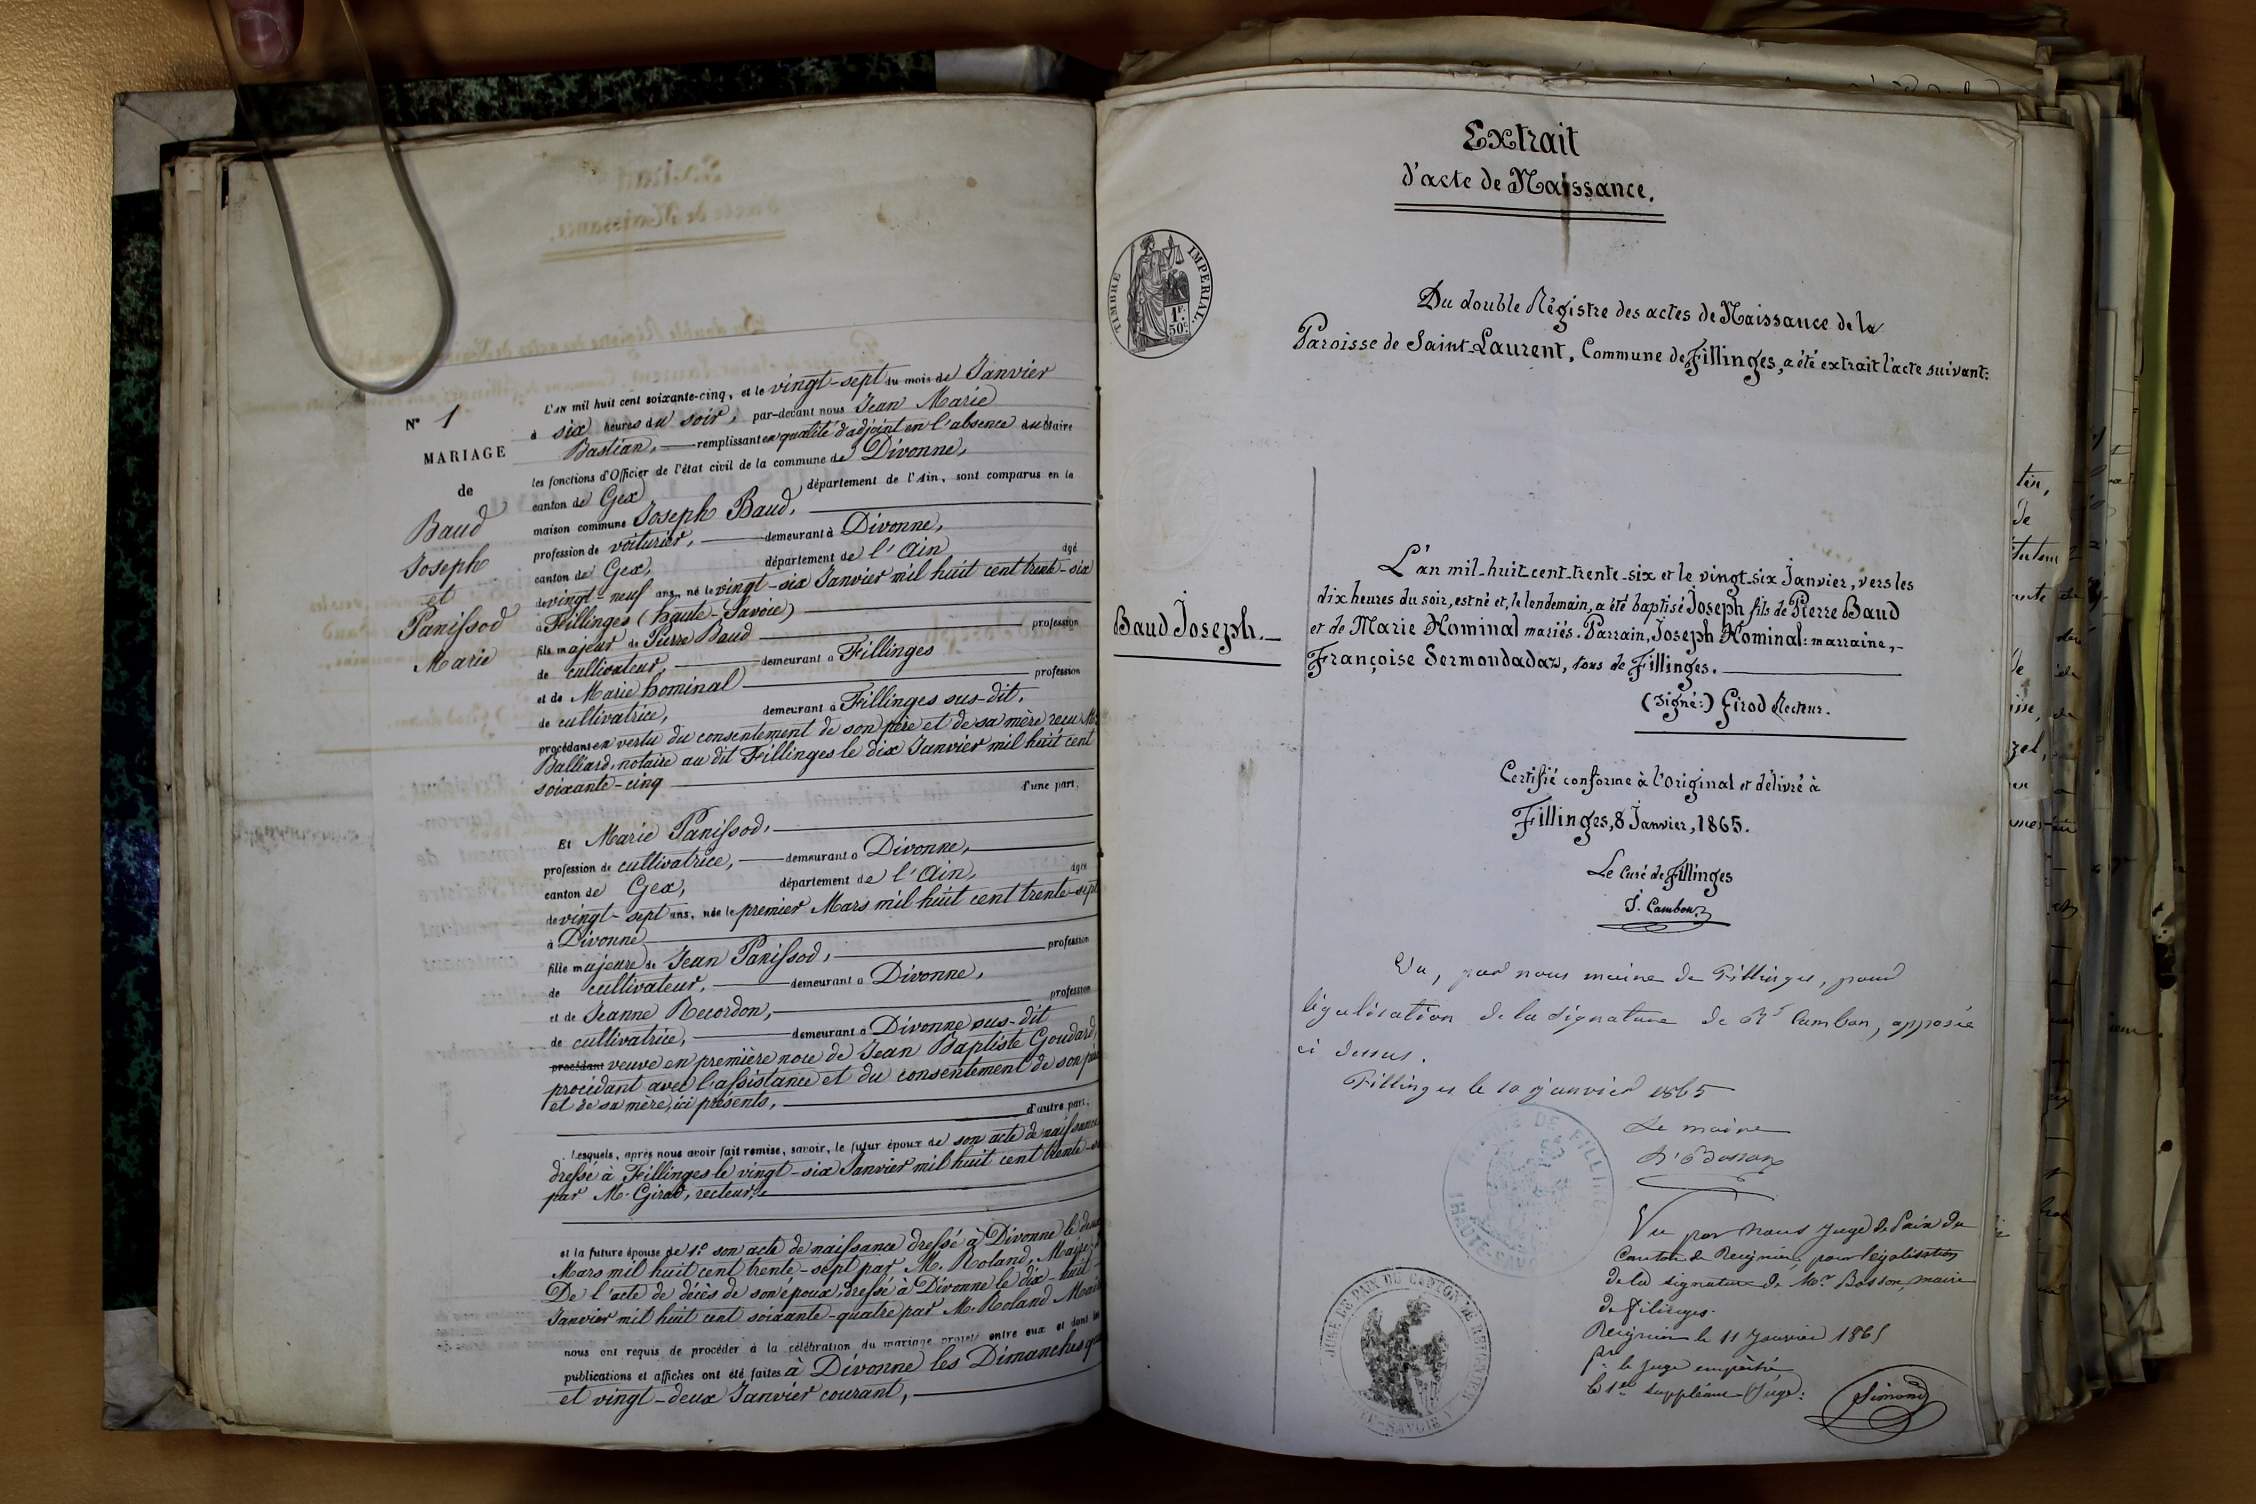 N° 1
MARIAGE
de
Baud
Joseph
et
Panissod
Marie
L'AN mil huit cent soixante-cinq, et le vingt-sept du mois de Janvier
à six heures du soir, par-devant nous Jean Marie
Bastian, remplissant en qualité d'adjoint en l'absence du Maire
les fonctions d'Officier de l'état civil de la commune de Divonne,
canton de Gex département de l'Ain, sont comparus en la
maison commune Joseph Baud,
profession de voiturier, demeurant à Divonne,
canton de Gex, département de l'Ain âgé
de vingt-neuf ans, né le vingt-six Janvier mil huit cent trente-six
à Fillinges (haute-Savoie)
fils majeur de Pierre Baud profession
de cultivateur, demeurant à Fillinges
et de Marie hominal profession
de cultivatrice, demeurant à Fillinges sus-dit,
procédant en vertu du consentement de son père et de sa mère reçu Me
Balliard, notaire au dit Fillinges le dix Janvier mil huit cent
soixante-cinq d'une part,
Et Marie Panissod,
profession de cultivatrice, demeurant à Divonne,
canton de Gex, département de l'Ain, âgée
de vingt-sept ans, née le premier Mars mil huit cent trente-sept
à Divonne
fille majeure de Jean Panissod, profession
de cultivateur, demeurant à Divonne,
et de Jeanne Recordon, profession
de cultivatrice, demeurant à Divonne sus-dit
procédant veuve en première noce de Jean Baptiste Goudard,
procédant avec l'assistance et du consentement de son père
et de sa mère, ici présents,
d'autre part,
Lesquels, après nous avoir fait remise, savoir, le futur époux de son acte de naissance
dressé à Fillinges le vingt-six Janvier mil huit cent trente-
par M. Girod, recteur,
et la future épouse de 1° son acte de naissance dressé à Divonne le deux
Mars mil huit cent trente-sept par M. Roland, Maire,
De l'acte de décès de son époux, dressé à Divonne le dix-huit
Janvier mil huit cent soixante-quatre par M. Roland Maire
nous ont requis de procéder à la célébration du mariage projeté entre eux et dont les
publications et affiches ont été faites à Divonne les Dimanches
et vingt-deux Janvier courant,
Extrait
d'acte de Naissance.
TIMBRE IMPERIAL.
1F.
50c.
Du double Régistre des actes de Naissance de la
Paroisse de Saint-Laurent, Commune de Fillinges, a été extrait l'acte suivant:
Baud Joseph.
L'an mil-huit-cent-trente-six et le vingt-six Janvier, vers les
dix heures du soir, est né et, le lendemain, a été baptisé Joseph fils de Pierre Baud
et de Marie Hominal mariés. Parrain, Joseph Hominal: marraine,
Françoise Sermondadaz, tous de Fillinges.
(signé:) Girod Recteur.
Certifié conforme à l'Original et délivré à
Fillinges, 8 Janvier, 1865.
Le Curé de Fillinges
J. Cambon
Vu, par nous maire de Fillinges, pour
légalisation de la signature de Rd Cambon, apposée
ci dessus.
Fillinges le 10 janvier 1865
Le maire
Bosson
DE FILLINGES
HAUTE-SAVOIE
Vu par Nous Juge de Paix du
Canton de Reignier, pour légalisation
de la signature de Mr Bosson, maire
de Filinges.
Reignier le 11 Janvier 1865
pr le Juge empêché
le 1er suppléant (Juge):
Simond
JUGE DE PAIX DU CANTON DE REIGNIER
HTE-SAVOIE